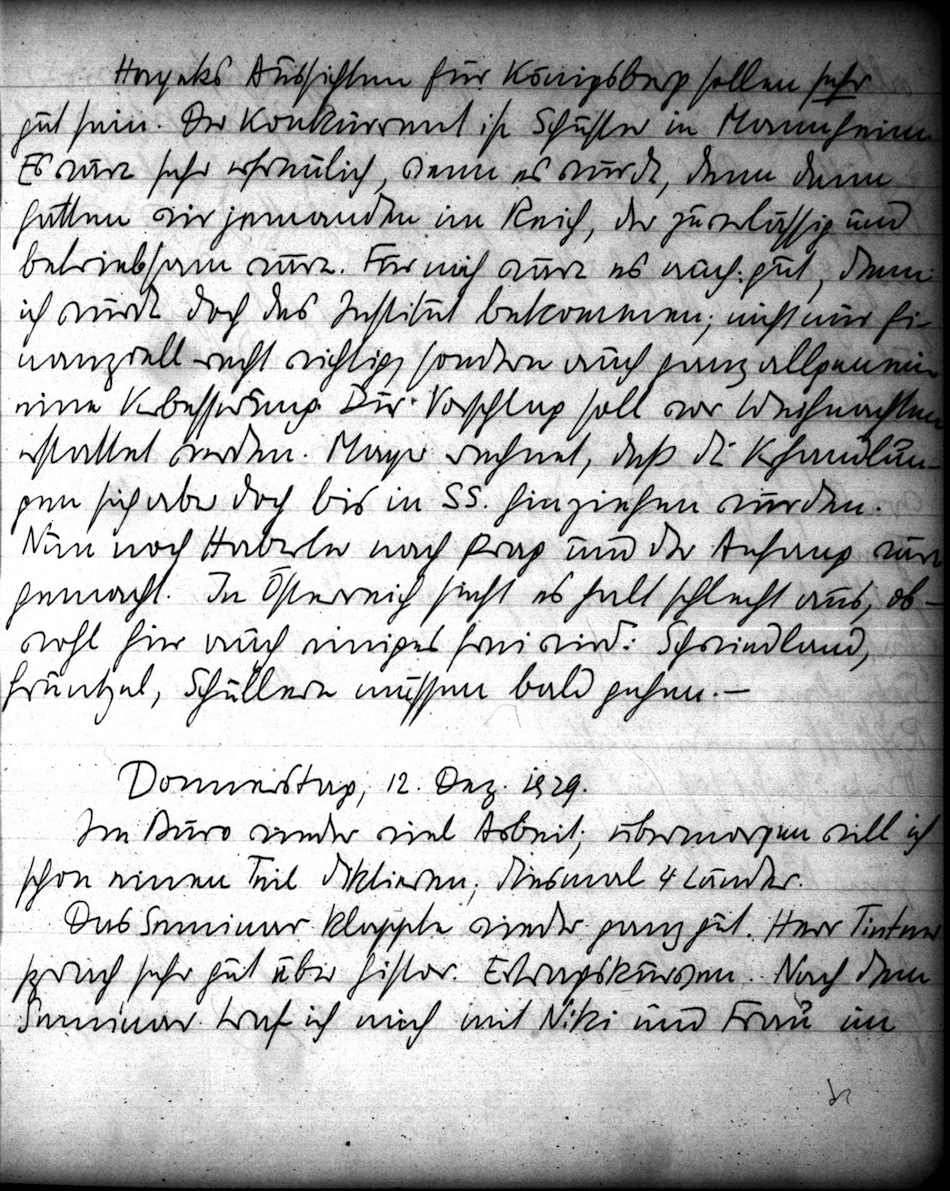 Hayeks Aussichten für Königsberg sollen sehr
gut sein. Der Konkurrent ist Schuster in Mannheim
Es wäre sehr erfreulich, wenn es würde, denn dann
hätten wir jemanden im Reich, der zuverlässig und
betriebsam wäre. Für mich wäre es auch gut, denn
ich würde doch das Institut bekommen; nicht nur fi-
nanziell recht wichtig, sondern auch ganz allgemein
eine Verbesserung. Der Vorschlag soll vor Weihnachten
erstattet werden. Mayer rechnet, daß die Verhandlun-
gen sich aber doch bis in SS. hinziehen würden.
Nun noch Haberler nach Prag und der Anfang wäre
gemacht. In Österreich sieht es halt schlecht aus, ob-
wohl hier auch einiges frei wird: Schwiedland,
Grünzel, Schullern müssen bald gehen.—
Donnerstag, 12. Dez. 1929.
Im Büro wieder viel Arbeit; übermorgen will ich
schon einen Teil diktieren; diesmal 4 Länder.
Das Seminar klappte wieder ganz gut. Herr Tintner
sprach sehr gut über histor. Ertragskurven. Nach dem
Seminar traf ich mich mit Niki und Frau im